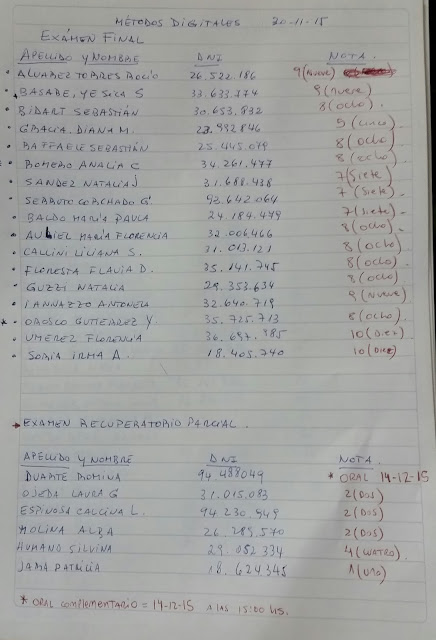 MÉTODOS DIGITALES 20-11-15
EXÁMEN FINAL
APELLIDO Y NOMBRE DNI NOTA
ALVAREZ TORRES ROCÍO 26.522.186 9 (NUEVE)
BASABE, YESICA S 33.633.774 9 (nueve)
BIDART SEBASTIÁN 30.653.832 8 (ocho)
GRACIA. DIANA M. 23.992846 5 (cinco)
RAFFAELE SEBASTIÁN 25.445.079 8 (ocho)
ROMERO ANALIA C 34.261.477 8 (ocho)
SANDEZ NATALIA J 31.688.438 7 (Siete)
SERRUTO CORCHADO G. 93.642.064 7 (Siete)
BALDO MARÍA PAULA 24.184.479 7 (siete)
MARÍA FLORENCIA 32.006.466 8 (ocho)
CALLINI LILIANA S. 31.013.121 8 (ocho)
FLORESTA FLAVIA D. 35.141.745 8 (ocho)
GUZZI NATALIA 29.353.634 8 (ocho)
IANNAZZO ANTONELA 32.640.719 9 (NUEVE)
* OROSCO GUTIERREZ Y. 35.725.713 8 (ocho)
UMEREZ FLORENCIA 36.697.985 10 (DIEZ)
SORIA IRMA A. 18.405.740 10 (DIEZ)
* EXAMEN RECUPERATORIO PARCIAL.
APELLIDO Y NOMBRE DNI NOTA
DUARTE ROMINA 94.488049 * ORAL 14-12-15
OJEDA LAURA G 31.015.083 2 (DOS)
ESPINOSA CALLCINA L. 94.230.949 2 (DOS)
MOLINA ALBA 26.289.570 2 (DOS)
HUMANO SILVINA 29.052.334 4 (CUATRO)
JAMA PATRICIA 18.624.345 1 (UNO)
* ORAL complementario = 14-12-15 A LAS 15:00 HS.